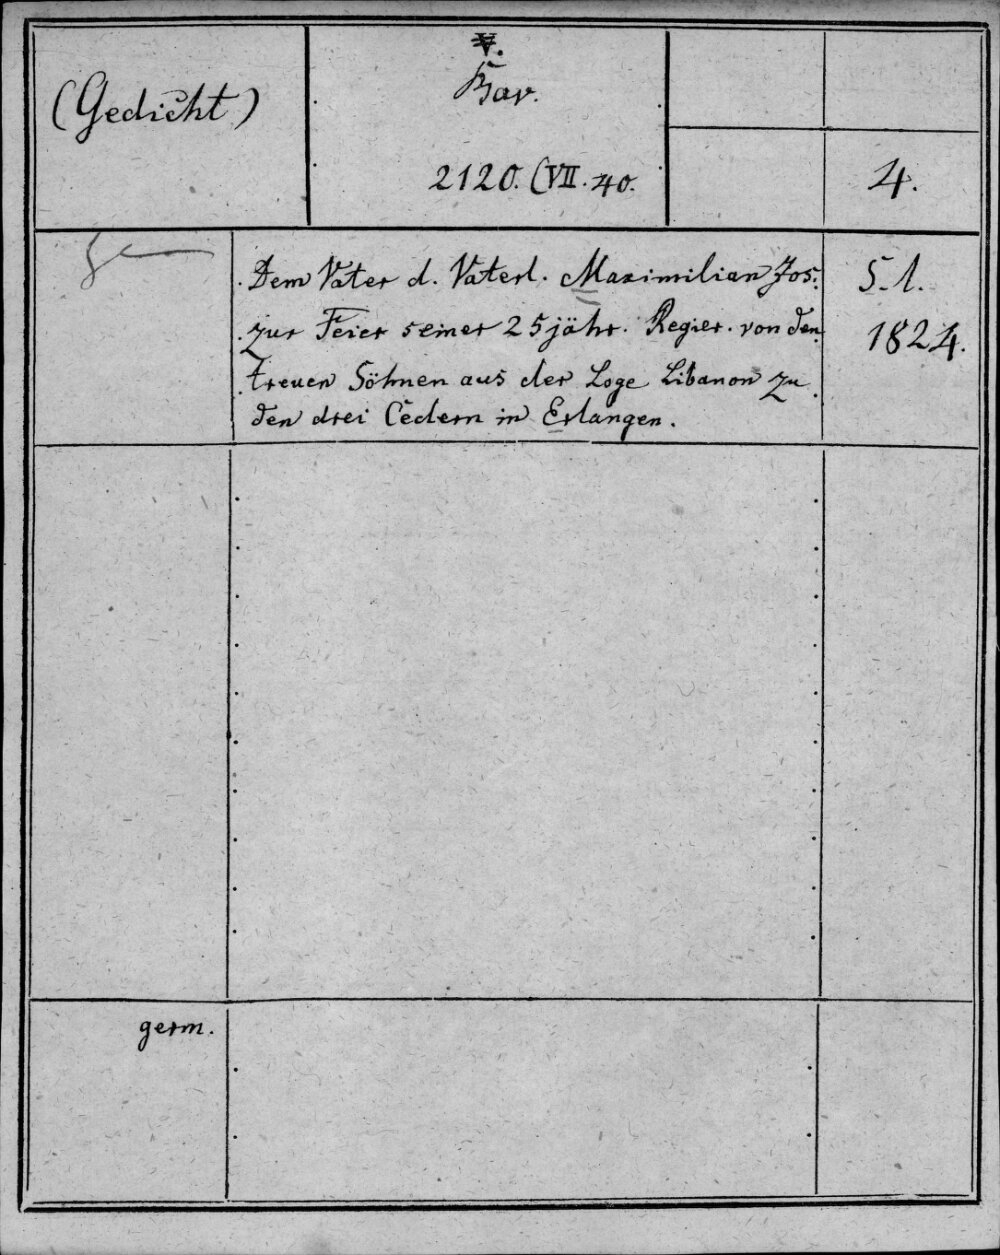 (Gedicht)
Bav.
2120. (VII. 40.
4.
Dem Vater d. Vaterl. Maximilian Jos.
zur Feier seiner 25jähr. Regier. von den
treuen Söhnen aus der Loge Libanon zu
den drei Cedern in Erlangen.
S. l.
1824.
germ.